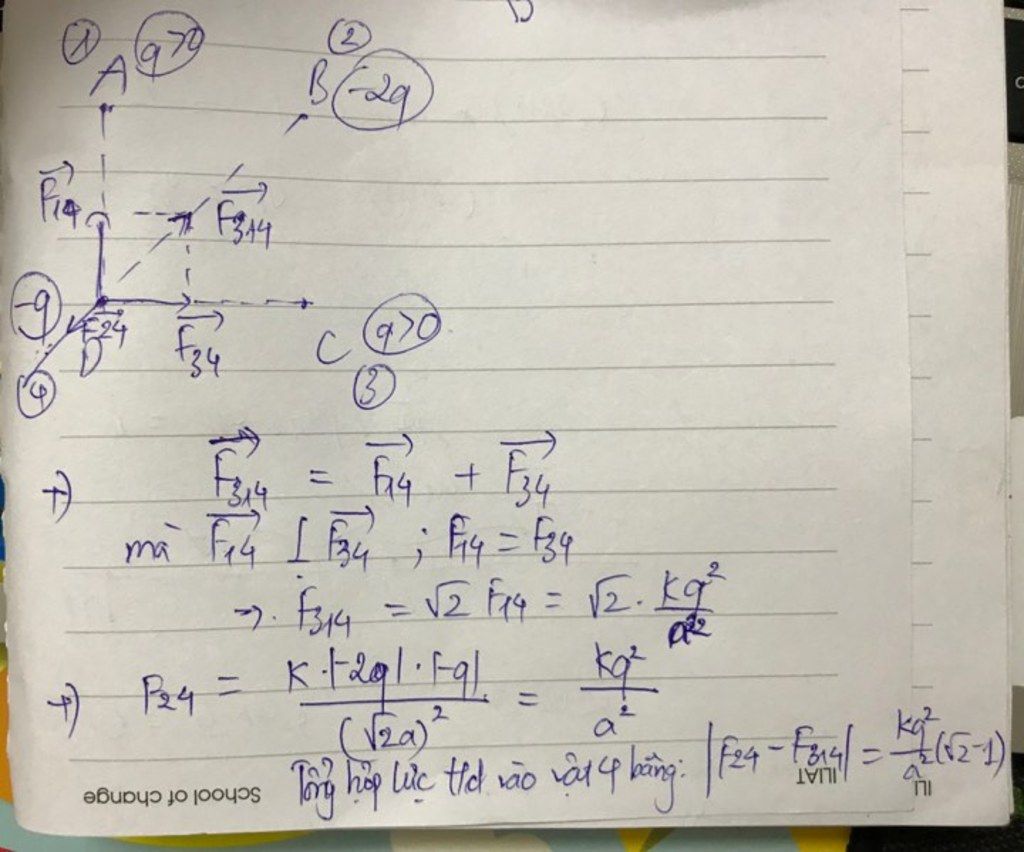 ① A (q>0)
② B (-2q)
F₁₄ F₃₁₄
-q F₂₄ F₃₄ C (q>0)
D
④ ③
+) F₃₁₄ = F₁₄ + F₃₄
mà F₁₄ ⊥ F₃₄ ; F₁₄ = F₃₄
→ F₃₁₄ = √2 F₁₄ = √2 . kq²/a²
+) F₂₄ = k.|-2q|.|-q|/(√2a)² = kq²/a²
Tổng hợp lực t/d vào vật 4 bằng: |F₂₄ - F₃₁₄| = kq²/a² (√2-1)
School of change
ILIAT
ILI